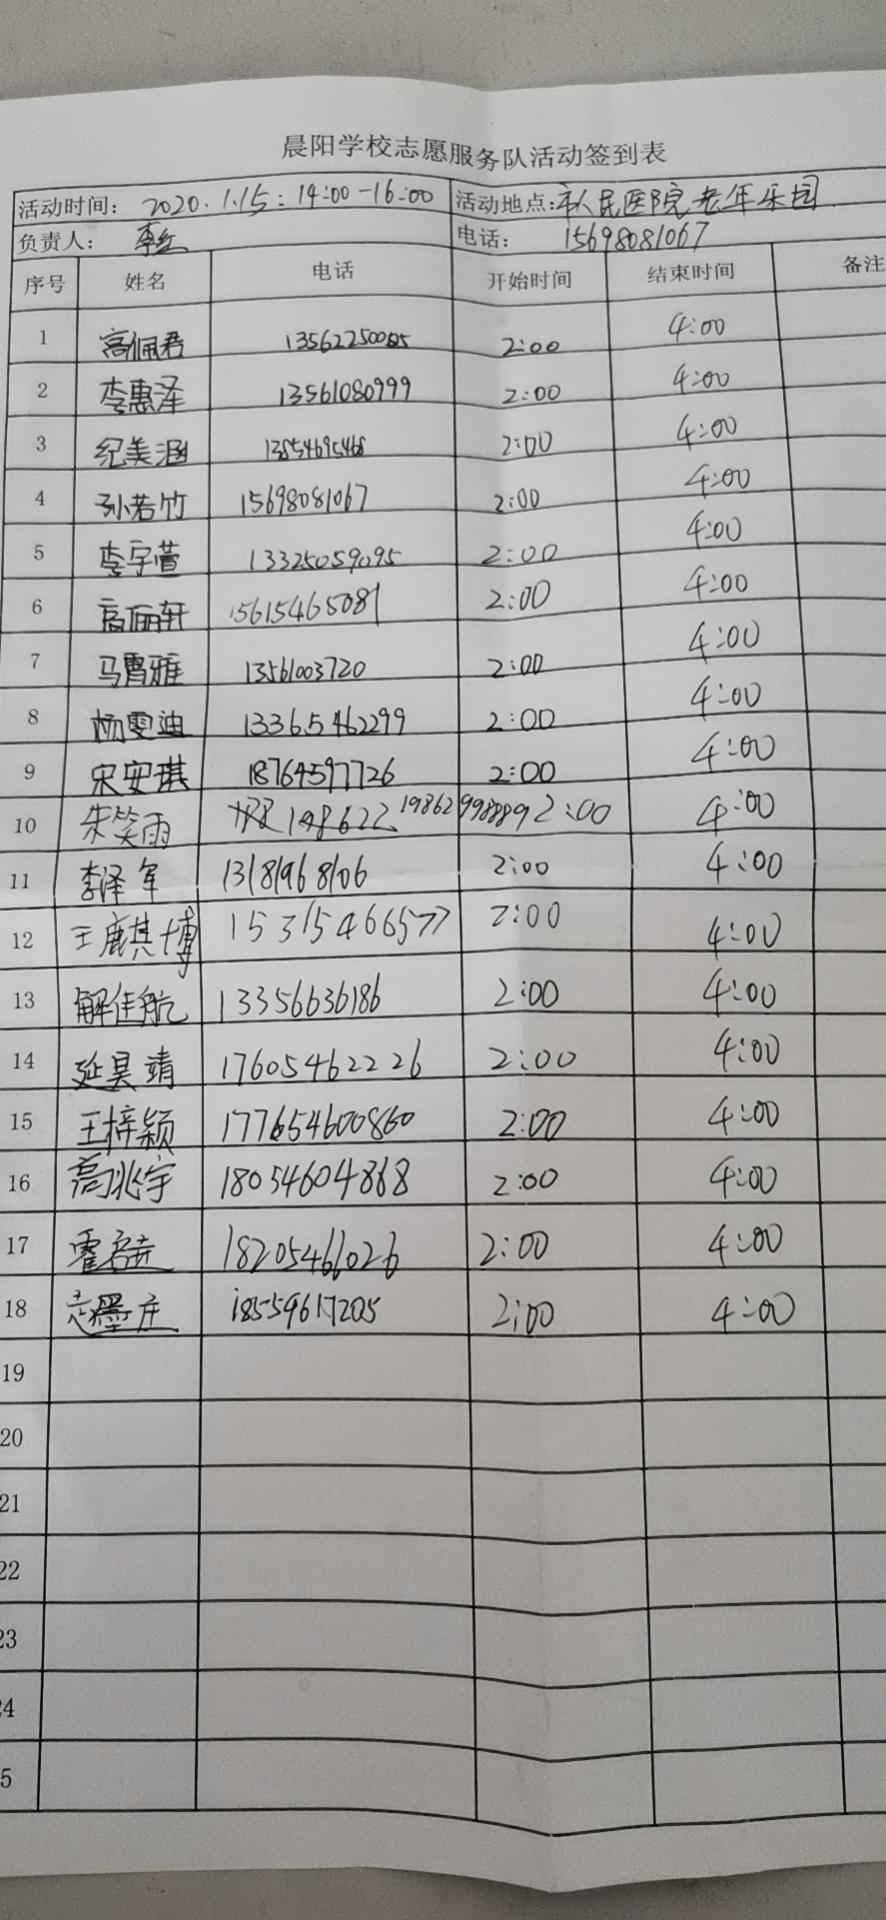 晨阳学校志愿服务队活动签到表
活动时间: 2020.1.15: 14:00-16:00 活动地点:市人民医院老年乐园
负责人: 电话: 15698081067
序号 姓名 电话 开始时间 结束时间 备注
1 高佩君 2:00 4:00
2 李惠泽 13561080999 2:00 4:00
3 纪美涵 13854695468 2:00 4:00
4 孙若竹 15698081067 2:00 4:00
5 李宇萱 13325059095 2:00 4:00
6 高俪轩 15615465081 2:00 4:00
7 马霄雅 13561003720 2:00 4:00
8 杨雯迪 13365462299 2:00 4:00
9 宋安琪 18764597726 2:00 4:00
10 朱笑雨 19862998889 2:00 4:00
11 李泽军 13181968106 2:00 4:00
12 王麒博 15315466577 2:00 4:00
13 解佳航 13356636186 2:00 4:00
14 延昊靖 17605462226 2:00 4:00
15 王梓颖 177654600860 2:00 4:00
16 高兆宇 18054604868 2:00 4:00
17 18205466026 2:00 4:00
18 18559617205 2:00 4:00
19
20
21
22
23
24
5